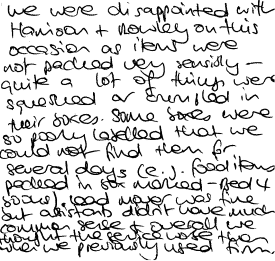 we were disappointed with
Harrison + Rowley on this
occasion as items were
not packed very sensibly -
quite a lot of things were
squashed or crumpled in
their boxes. Some boxes were
so poorly labelled that we
could not find them for
several days (e.g. food items
packed in box marked - Bed 4
books). Lead mover was fine
but assistants didn't have much
common sense & overall we
thought the service worse than
when we previously used firm